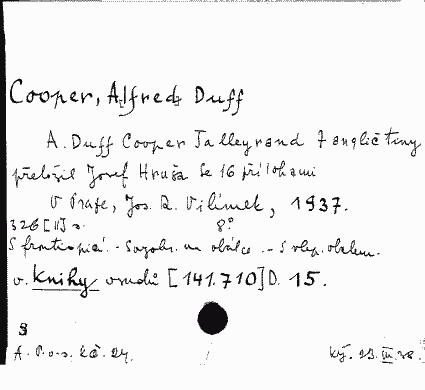 Cooper, Alfred Duff
A. Duff Cooper Talleyrand Z angličtiny
přeložil Josef Hruša Se 16 přílohami
V Praze, Jos. R. Vilímek, 1937.
326 [II] s. 8°
S frontispicí. - S vyobr. na obálce. - S obálkou.
v. Knihy osudů [141.710] D. 15.
A. P. o. s.